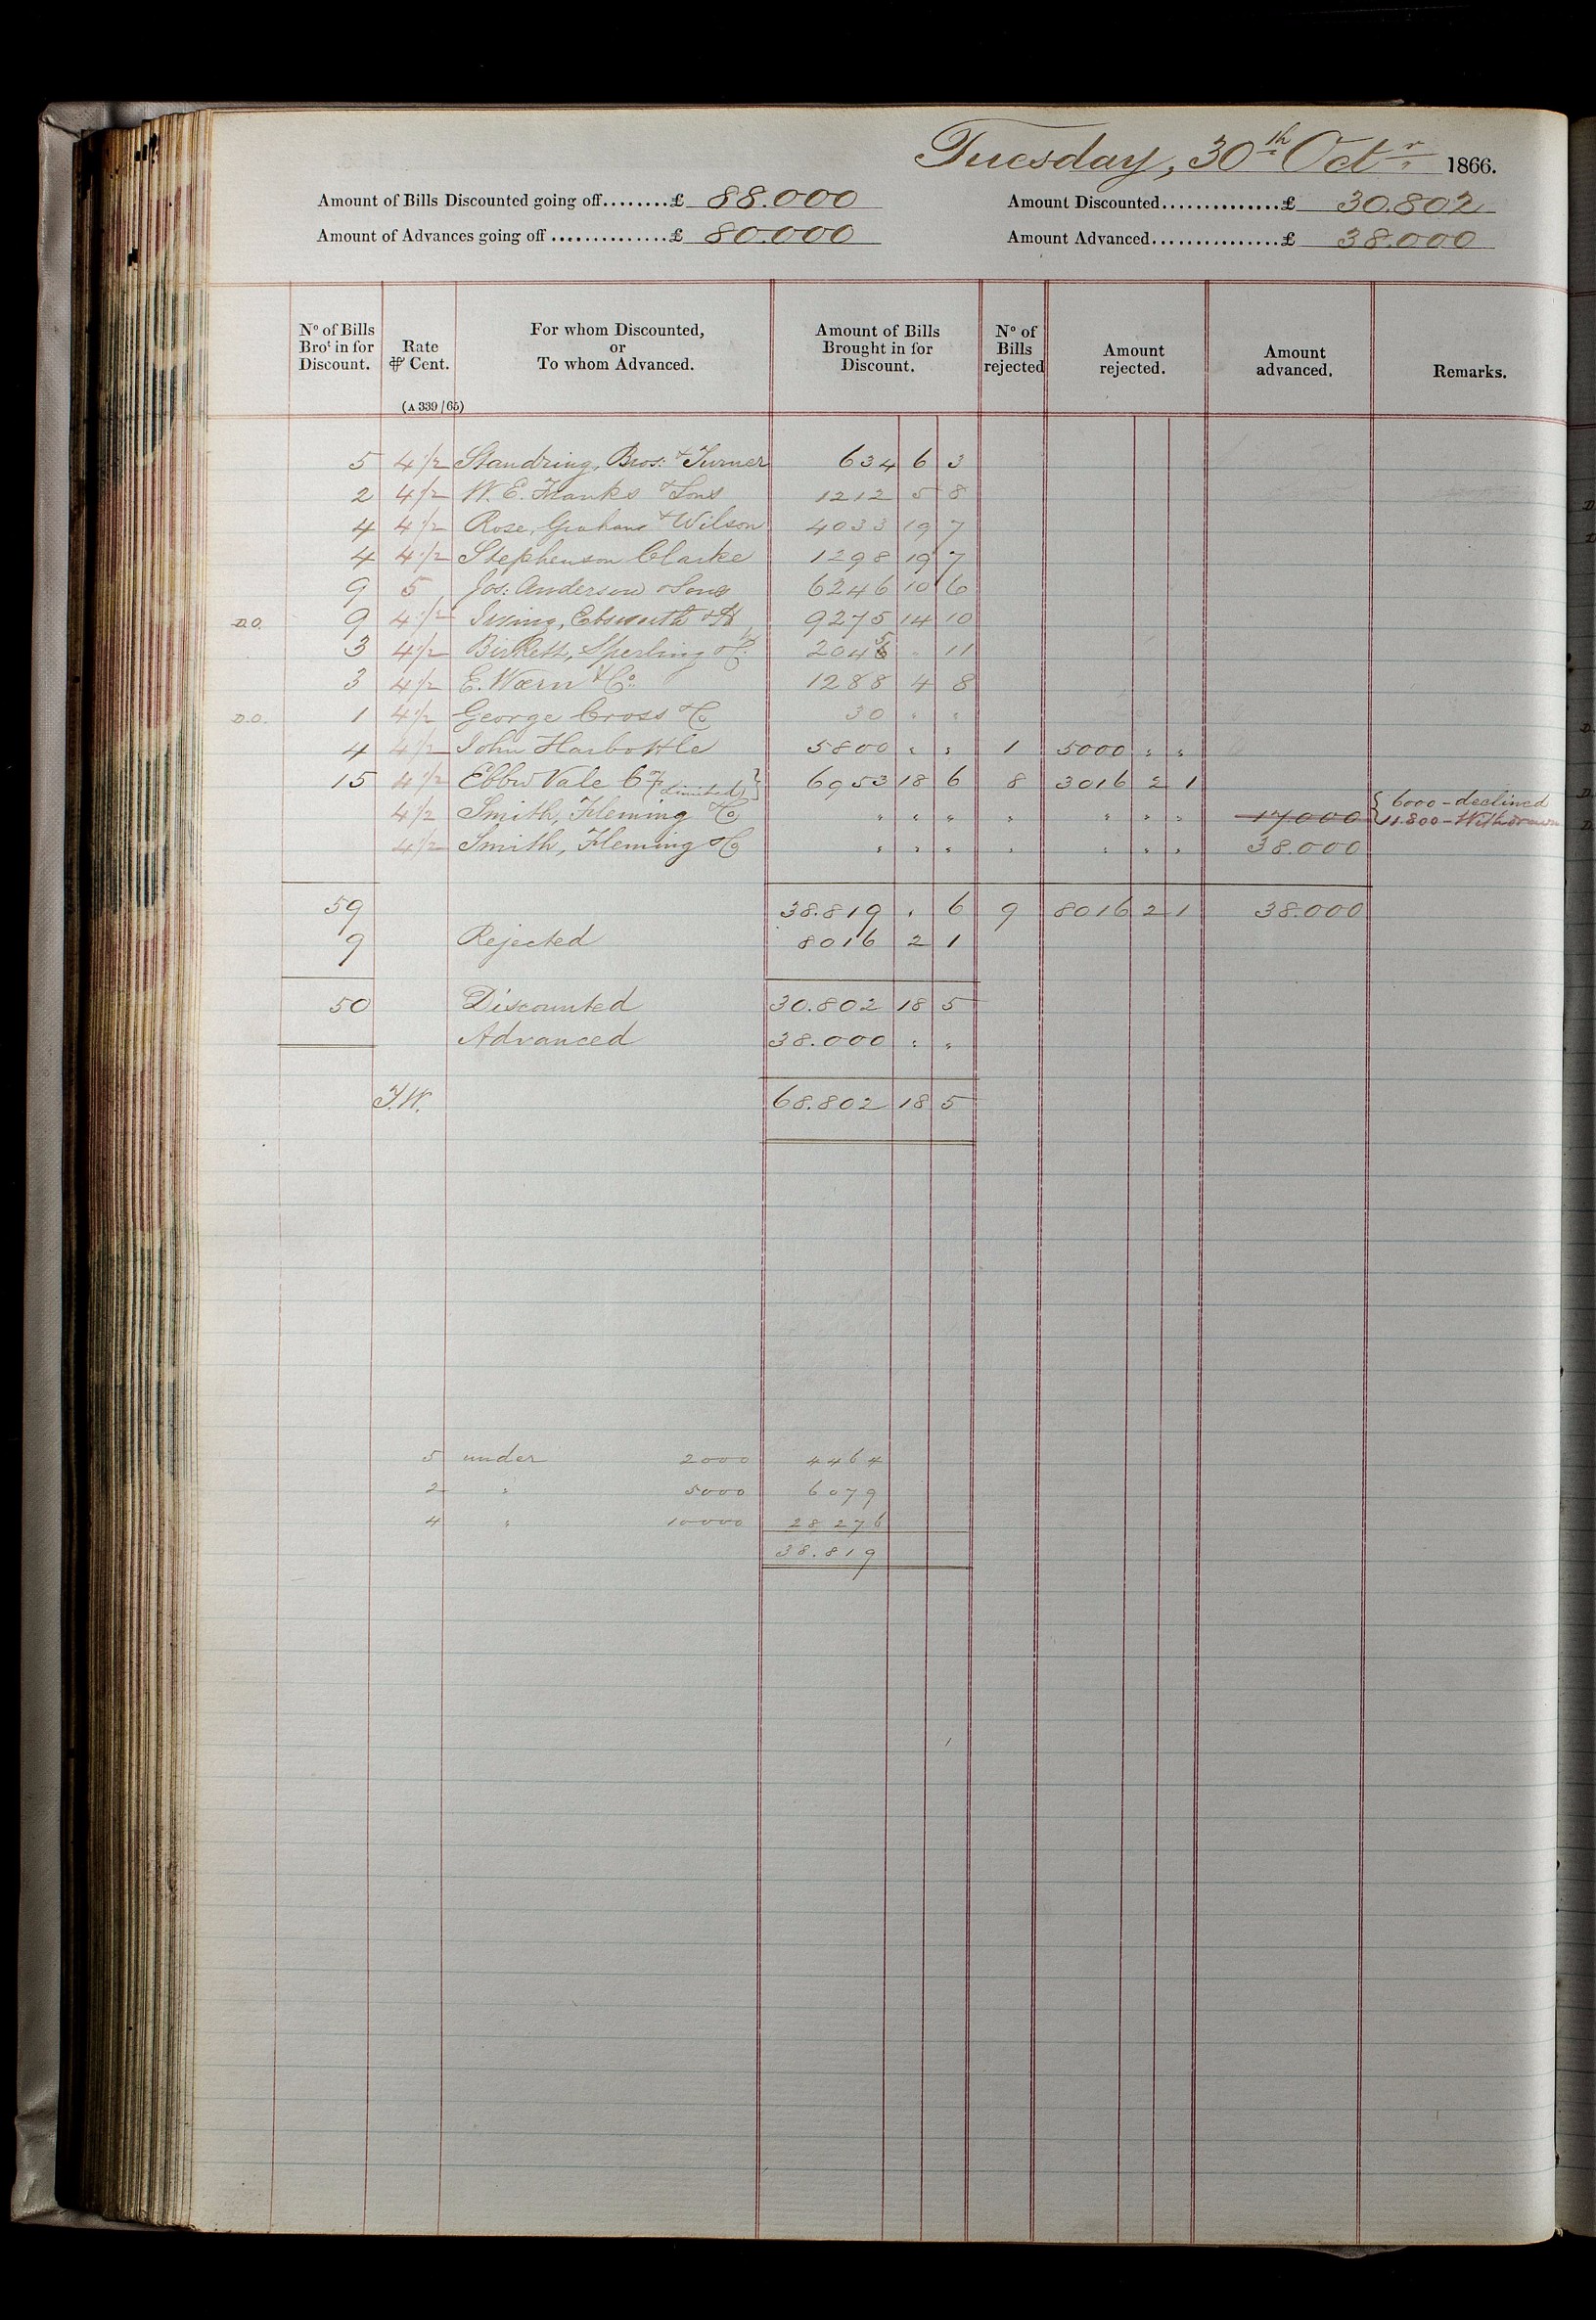 Tuesday, 30th Octr 1866.
Amount of Bills Discounted going off........£ 88.000 Amount Discounted..............£ 30.802
Amount of Advances going off..............£ 80.000 Amount Advanced...............£ 38.000
No of Bills Brot in for Discount. Rate ⅌ Cent. For whom Discounted, or To whom Advanced. Amount of Bills Brought in for Discount. No of Bills rejected Amount rejected. Amount advanced. Remarks.
(A 339/65)
5 4½ Standring, Bros: & Turner 634 6 3
2 4½ W. E. Franks & Sons 1212 5 8
4 4½ Rose, Graham & Wilson 4033 19 7
4 4½ Stephenson Clarke 1298 19 7
9 5 Jos: Anderson & Sons 6246 10 6
D.O. 9 4½ Irving, Ebsworth & H 9275 14 10
3 4½ Birkett, Sperling & Co. 2045 " 11
3 4½ E. Wærn & Co. 1288 4 8
D.O. 1 4½ George Cross & Co 30 " "
4 4½ John Harbottle 5800 " " 1 5000 " "
15 4½ Ebbw Vale Cy (Limited) 6953 18 6 8 3016 2 1
4½ Smith, Fleming & Co " " " " " " " 17000 { 6000 - declined
11.800 - Withdrawn
4½ Smith, Fleming & Co " " " " " " " 38.000
59 38.819 " 6 9 8016 2 1 38.000
9 Rejected 8016 2 1
50 Discounted 30.802 18 5
Advanced 38.000 " "
J.W. 68.802 18 5
5 under 2000 4464
2 " 5000 6079
4 " 10000 28276
38.819